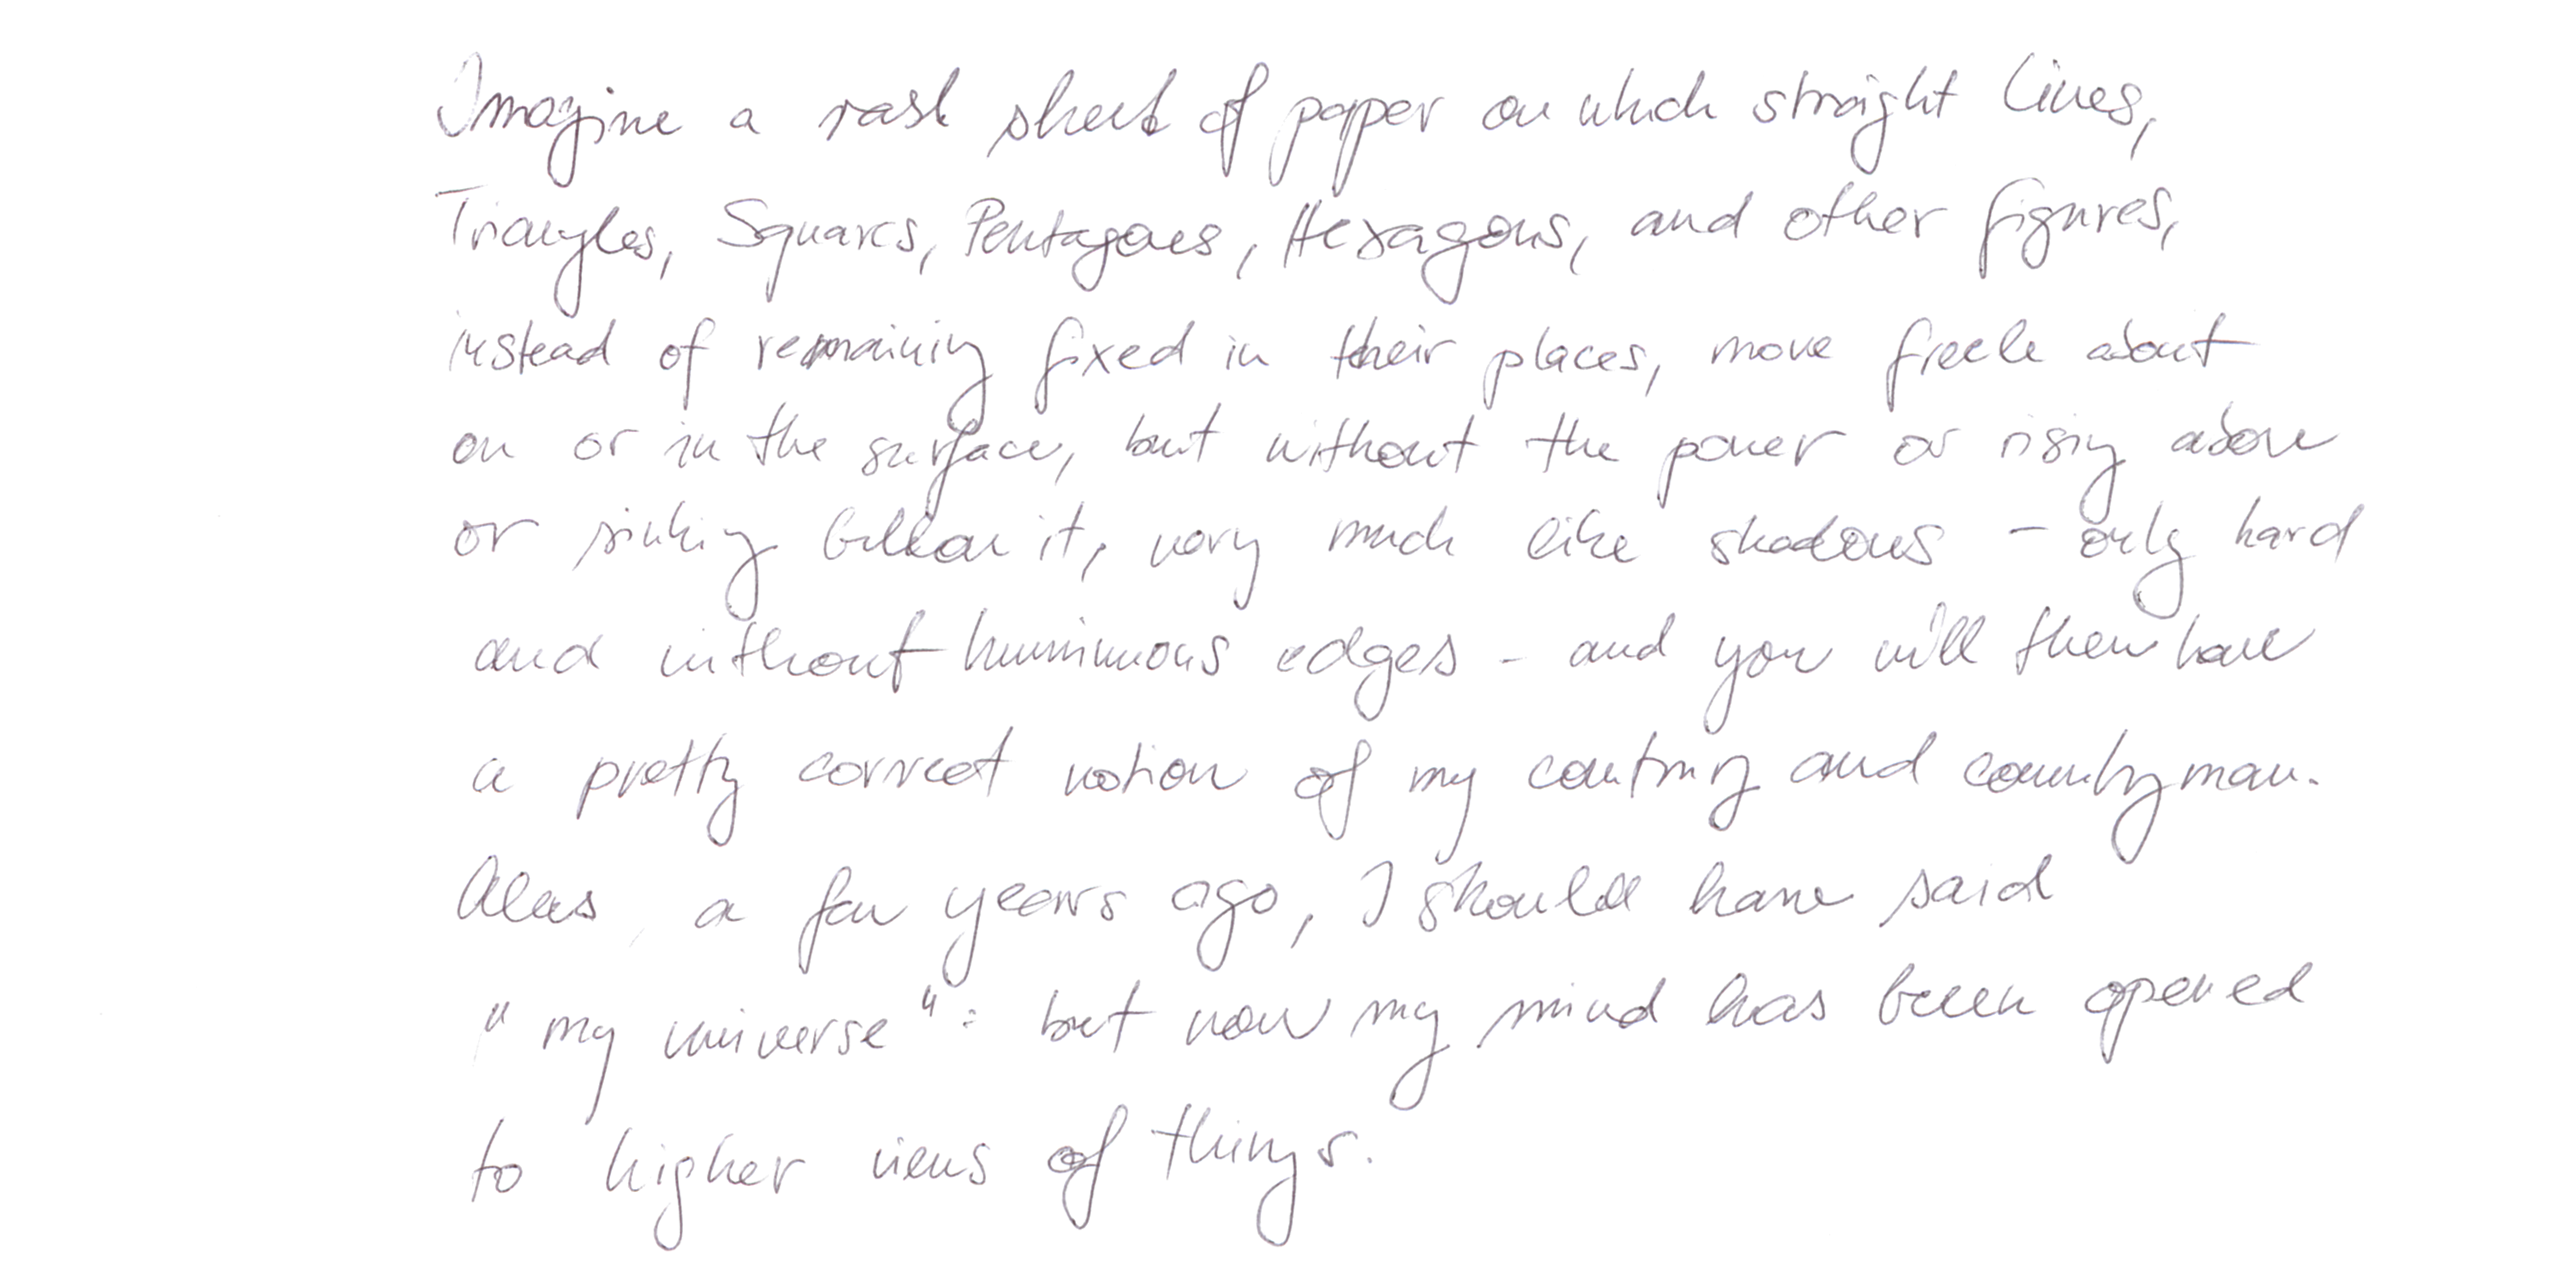 Imagine a vast sheet of paper on which straight Lines,
Triangles, Squares, Pentagons, Hexagons, and other figures,
instead of remaining fixed in their places, move freele about
on or in the surface, but without the power or rising above
or sinking below it, very much like shadows - only hard
and without edges - and you will then have
a pretty correct notion of my country and countryman.
Alas, a few years ago, I should have said
"my universe": but now my mind has been opened
to higher views of things.